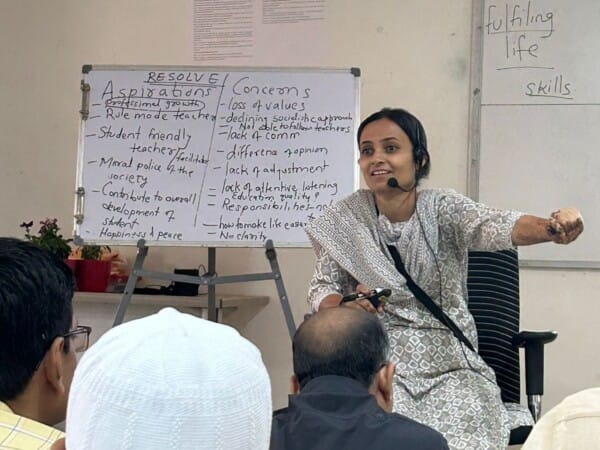 RESOLVE
Aspirations
- professional growth
- Rule mode teacher
- Student friendly
teachers/facilitator
- Moral police of the
society
- Contribute to overall
development of
student
- Happiness & peace
Concerns
- loss of values
- declining socialistic approach
- Not able to follow teachers
- lack of comm
- difference of opinion
- lack of adjustment
- lack of attentive listening
- Education quality &
- Responsibilities-no
- how to make life easy
- No clarity
fulfiling
life
skills